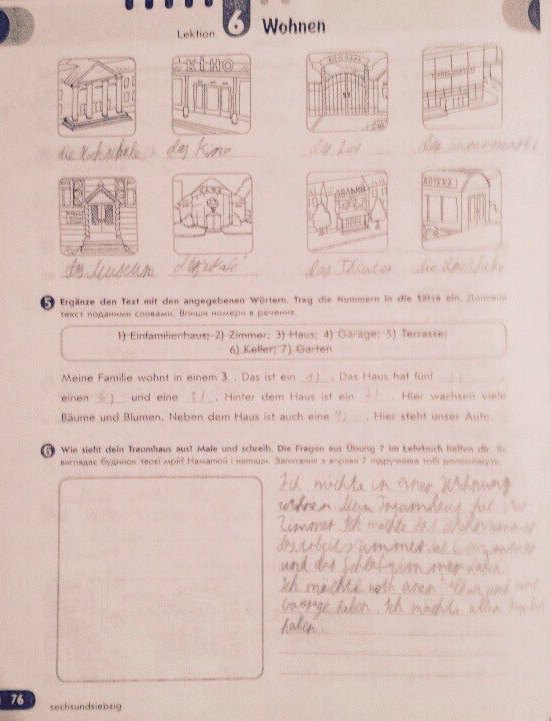 Lektion 6 Wohnen
КІНО
ЗООПАРК
die Hochschule
das Kino
der Zoo
der Supermarkt
КАФЕ
АПТЕКА
das Museum
das Café
das Theater
die Apotheke
5 Ergänze den Text mit den angegebenen Wörtern. Trag die Nummern in die Sätze ein. Доповни
текст поданими словами. Впиши номери в речення.
1) Einfamilienhaus; 2) Zimmer; 3) Haus; 4) Garage; 5) Terrasse;
6) Keller; 7) Garten
Meine Familie wohnt in einem 3 . Das ist ein 1) . Das Haus hat fünf
einen 6) und eine . Hinter dem Haus ist ein 7) . Hier wachsen viele
Bäume und Blumen. Neben dem Haus ist auch eine 4) . Hier steht unser Auto.
6 Wie sieht dein Traumhaus aus? Male und schreib. Die Fragen aus Übung 7 im Lehrbuch helfen dir. Як
виглядає будинок твоєї мрії? Намалюй і напиши. Запитання з вправи 7 підручника тобі допоможуть.
Ich möchte in einer Wohnung
wohnen. Mein Traumhaus hat
Zimmer. Ich möchte das Wohnzimmer
das Arbeitszimmer, das
und das Schlafzimmer haben.
Ich möchte noch einen und eine
Garage haben. Ich möchte
haben.
76
sechsundsiebzig